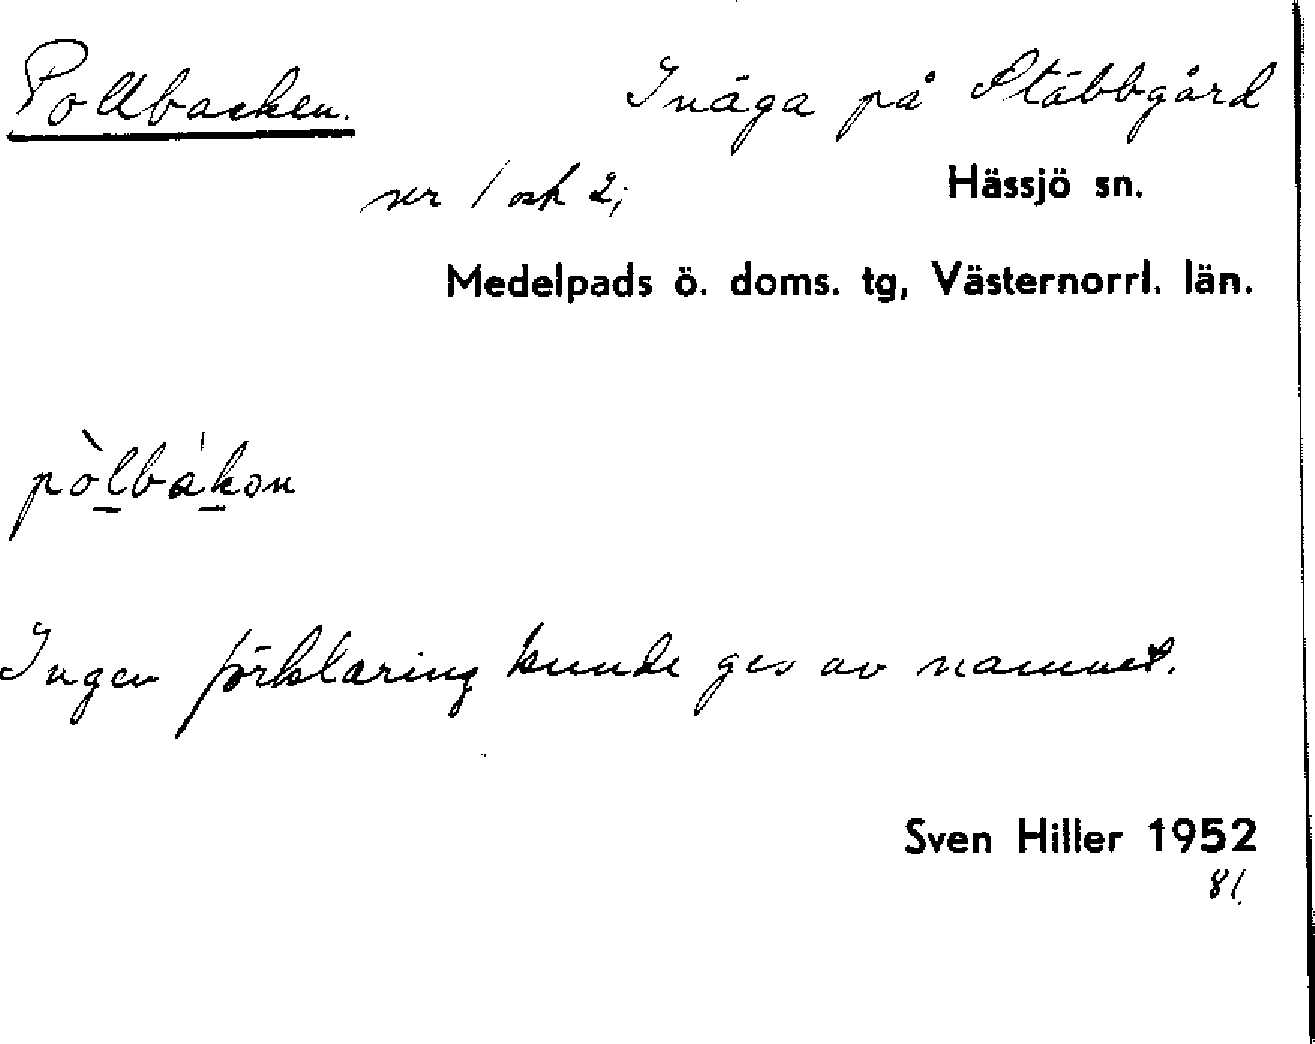 Pollbacken. Inäga på Stäbbgård
nr 1 och 2; Hässjö sn.
Medelpads ö. doms. tg, Västernorrl. län.
pòlbákon
Ingen förklaring kunde ges av namnet.
Sven Hiller 1952
81.